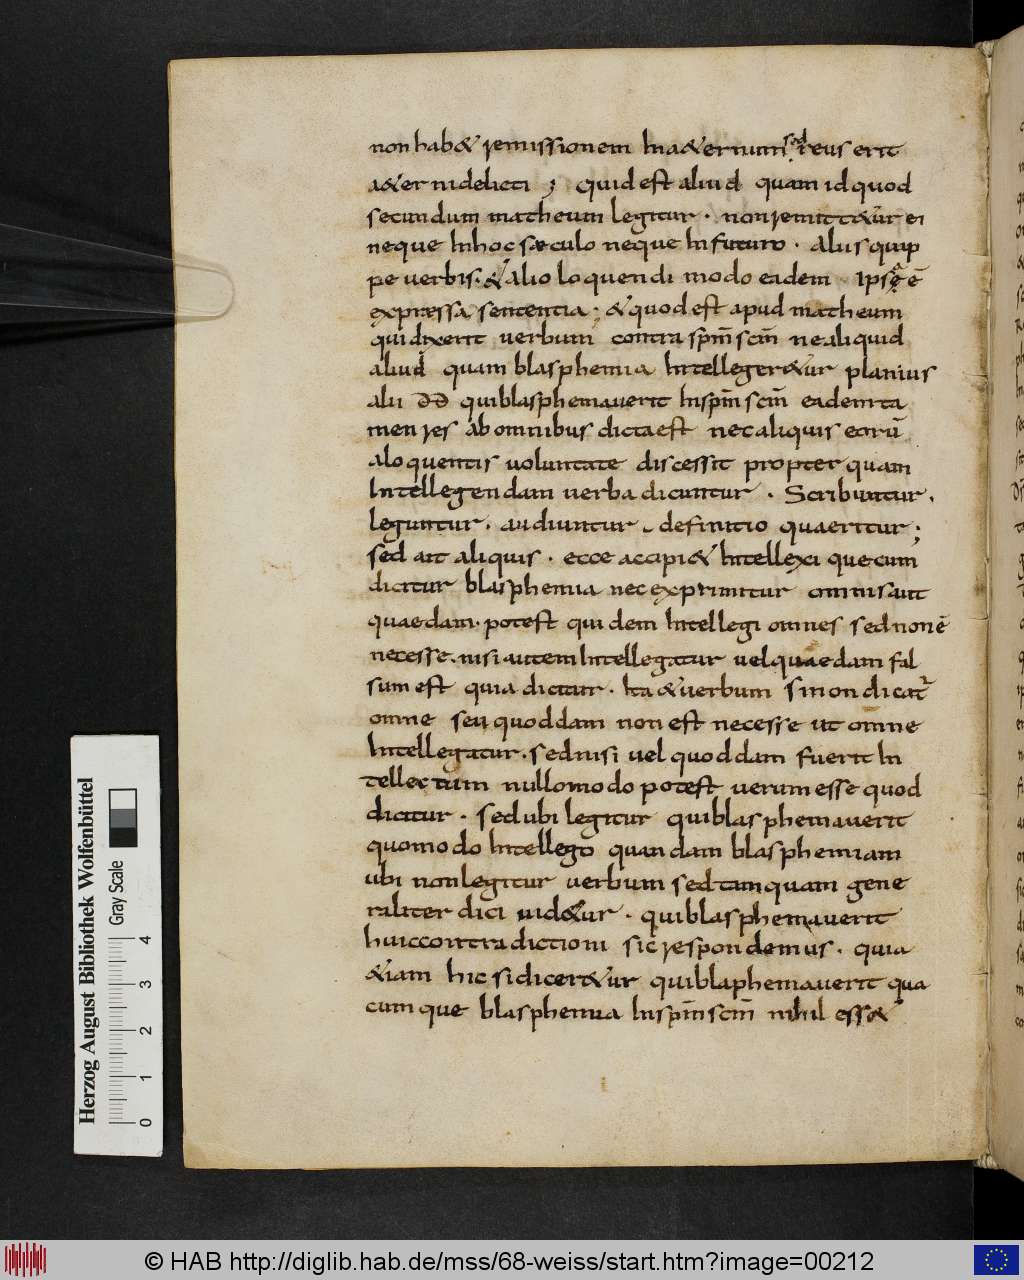 non hab& remissionem In a&ernum sed reus erit
a&erni delicti ; quid est aliud quam id quod
secundum matheum legitur · non remitt&ur ei
neque In hoc sæculo neque In futuro · aliis quip
pe uerbis · & alio loquendi modo eadem ipsa ē
expressa sententia · & quod est apud matheum
qui dixerit uerbum contra spm̄ scm̄ ne aliquid
aliud quam blasphemia Intelleger&ur planius
alii qui blasphemauerit In spm̄ scm̄ eadem ta
men res ab omnibus dicta est nec aliquis eorū
a loquentis uoluntate discessit propter quam
Intellegendam uerba dicuntur · Scribuntur ·
leguntur · audiuntur definitio quaeritur ;
sed ait aliquis · ecce accipi& Intellexi que cum
dicitur blasphemia nec exprimitur omnis aut
quaedam · potest quidem Intellegi omnes sed non ē
necesse · nisi autem Intellegatur uel quaedam fal
sum est quia dicitur · Ita & uerbum si non dicat͛
omne seu quoddam non est necesse ut omne
Intellegatur · sed nisi uel quoddam fuerit In
tellectum nullo modo potest uerum esse quod
dicitur · sed ubi legitur qui blasphemauerit
quomodo Intellego quandam blasphemiam
ubi non legitur uerbum sed tamquam gene
raliter dici uid&ur · qui blasphemauerit
huic contradictioni sic respondemus · quia
&iam hic si dicer&ur qui blaphemauerit qua
cumque blasphemia In spm̄ scm̄ nihil ess&
Herzog August Bibliothek Wolfenbüttel
Gray Scale
0 1 2 3 4
© HAB http://diglib.hab.de/mss/68-weiss/start.htm?image=00212